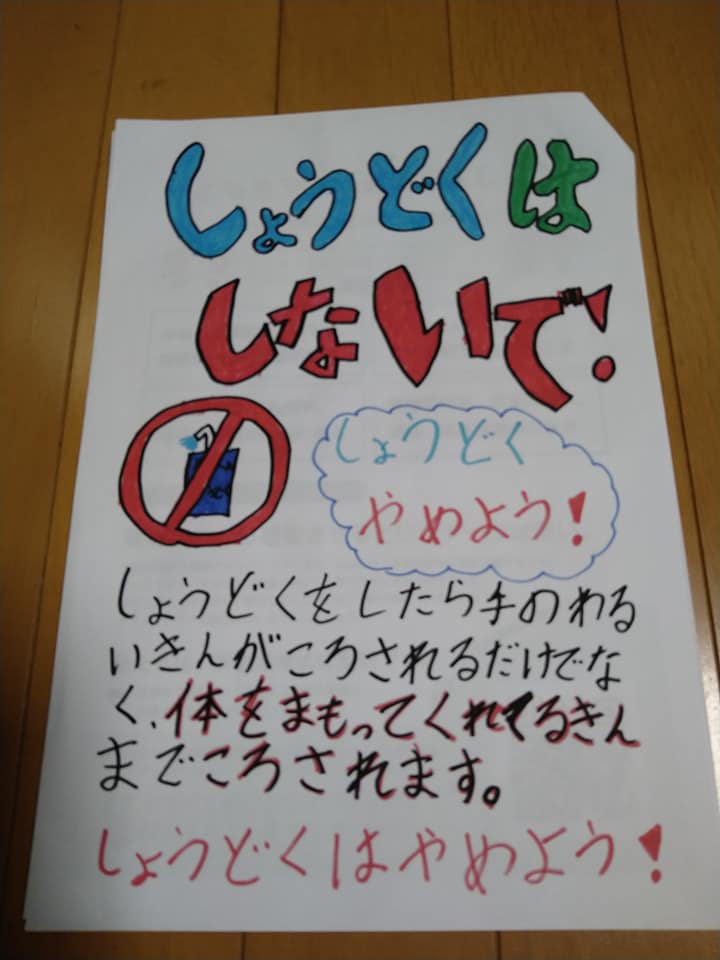 しょうどくは
しないで！
しょうどく
やめよう！
しょうどくをしたら手のわる
いきんがころされるだけでな
く、体をまもってくれてるきん
までころされます。
しょうどくはやめよう！